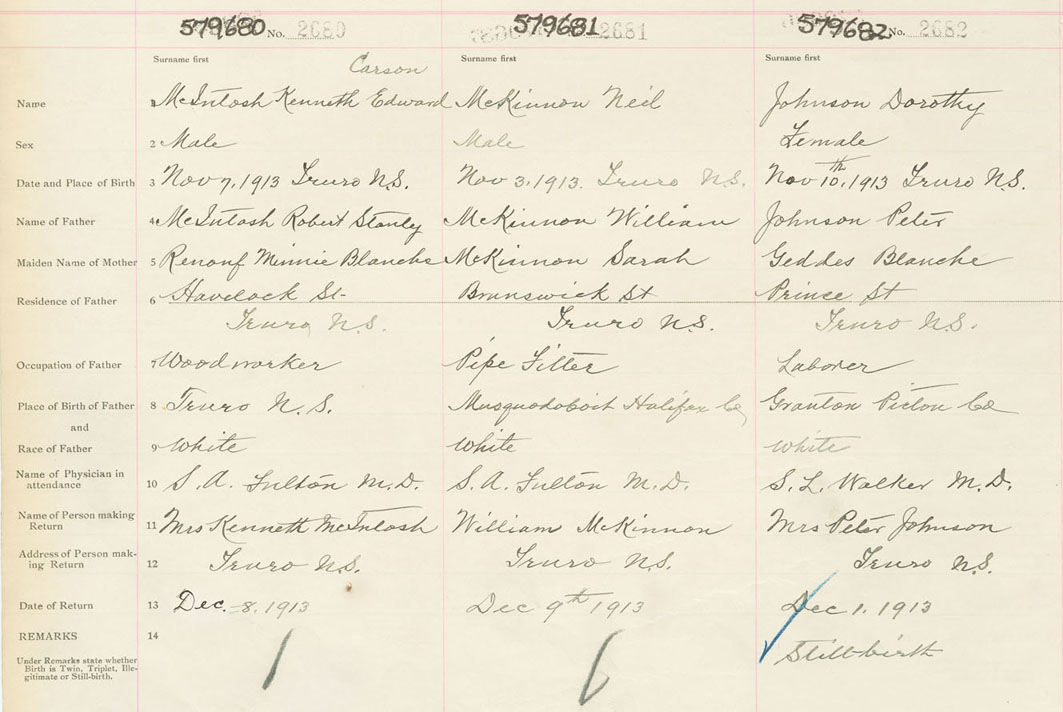 579680 No. 2680 579681 2681 579682 No. 2682
Surname first Surname first Surname first
Carson
Name 1 McIntosh Kenneth Edward McKinnon Neil Johnson Dorothy
Sex 2 Male Male Female
Date and Place of Birth 3 Nov 7, 1913 Truro N.S. Nov 3, 1913. Truro N.S. Nov 10th, 1913 Truro N.S.
Name of Father 4 McIntosh Robert Stanley McKinnon William Johnson Peter
Maiden Name of Mother 5 Renouf Minnie Blanche McKinnon Sarah Geddes Blanche
Residence of Father 6 Havelock St- Brunswick St Prince St
Truro N.S. Truro N.S. Truro N.S.
Occupation of Father 7 Woodworker Pipe Fitter Laborer
Place of Birth of Father 8 Truro N.S. Musquodoboit Halifax Co Granton Pictou Co
and
Race of Father 9 White White White
Name of Physician in
attendance 10 S. A. Fulton M.D. S. A. Fulton M.D. S. L. Walker M.D.
Name of Person making
Return 11 Mrs Kenneth McIntosh William McKinnon Mrs Peter Johnson
Address of Person mak-
ing Return 12 Truro N.S. Truro N.S. Truro N.S.
Date of Return 13 Dec. 8, 1913 Dec 9th 1913 Dec 1, 1913
REMARKS 14
Under Remarks state whether
Birth is Twin, Triplet, Ille-
gitimate or Still-birth.
Still-birth